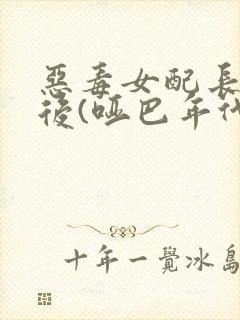 惡毒女配長
後(啞巴年代
十年一覺冰島